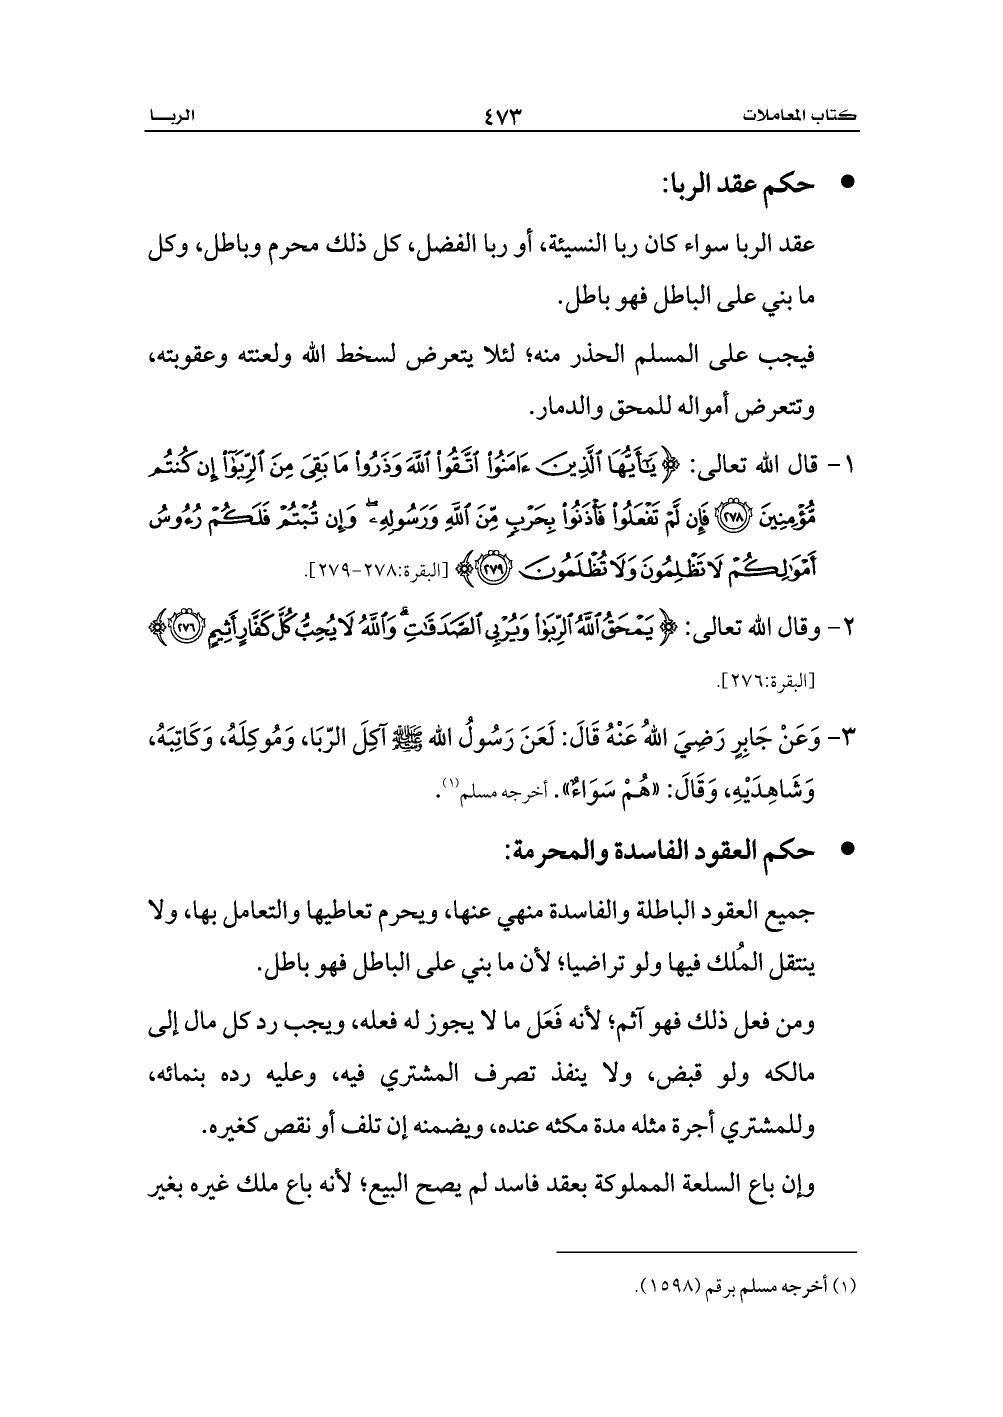 كتاب المعاملات ٤٧٣ الربــا
• حكم عقد الربا:
عقد الربا سواء كان ربا النسيئة، أو ربا الفضل، كل ذلك محرم وباطل، وكل
ما بني على الباطل فهو باطل.
فيجب على المسلم الحذر منه؛ لئلا يتعرض لسخط الله ولعنته وعقوبته،
وتتعرض أمواله للمحق والدمار.
١- قال الله تعالى: ﴿ يَٰٓأَيُّهَا ٱلَّذِينَ ءَامَنُوا۟ ٱتَّقُوا۟ ٱللَّهَ وَذَرُوا۟ مَا بَقِىَ مِنَ ٱلرِّبَوٰٓا۟ إِن كُنتُم
مُّؤْمِنِينَ ﴿٢٧٨﴾ فَإِن لَّمْ تَفْعَلُوا۟ فَأْذَنُوا۟ بِحَرْبٍ مِّنَ ٱللَّهِ وَرَسُولِهِۦ ۖ وَإِن تُبْتُمْ فَلَكُمْ رُءُوسُ
أَمْوَٰلِكُمْ لَا تَظْلِمُونَ وَلَا تُظْلَمُونَ ﴿٢٧٩﴾ ﴾ [البقرة:٢٧٨-٢٧٩].
٢- وقال الله تعالى: ﴿ يَمْحَقُ ٱللَّهُ ٱلرِّبَوٰا۟ وَيُرْبِى ٱلصَّدَقَٰتِ ۗ وَٱللَّهُ لَا يُحِبُّ كُلَّ كَفَّارٍ أَثِيمٍ ﴿٢٧٦﴾ ﴾
[البقرة:٢٧٦].
٣- وَعَنْ جَابِرٍ رَضِيَ اللهُ عَنْهُ قَالَ: لَعَنَ رَسُولُ الله ﷺ آكِلَ الرِّبَا، وَمُوكِلَهُ، وَكَاتِبَهُ،
وَشَاهِدَيْهِ، وَقَالَ: «هُمْ سَوَاءٌ». أخرجه مسلم(١).
• حكم العقود الفاسدة والمحرمة:
جميع العقود الباطلة والفاسدة منهي عنها، ويحرم تعاطيها والتعامل بها، ولا
ينتقل المُلك فيها ولو تراضيا؛ لأن ما بني على الباطل فهو باطل.
ومن فعل ذلك فهو آثم؛ لأنه فَعَل ما لا يجوز له فعله، ويجب رد كل مال إلى
مالكه ولو قبض، ولا ينفذ تصرف المشتري فيه، وعليه رده بنمائه،
وللمشتري أجرة مثله مدة مكثه عنده، ويضمنه إن تلف أو نقص كغيره.
وإن باع السلعة المملوكة بعقد فاسد لم يصح البيع؛ لأنه باع ملك غيره بغير
(١) أخرجه مسلم برقم (١٥٩٨).